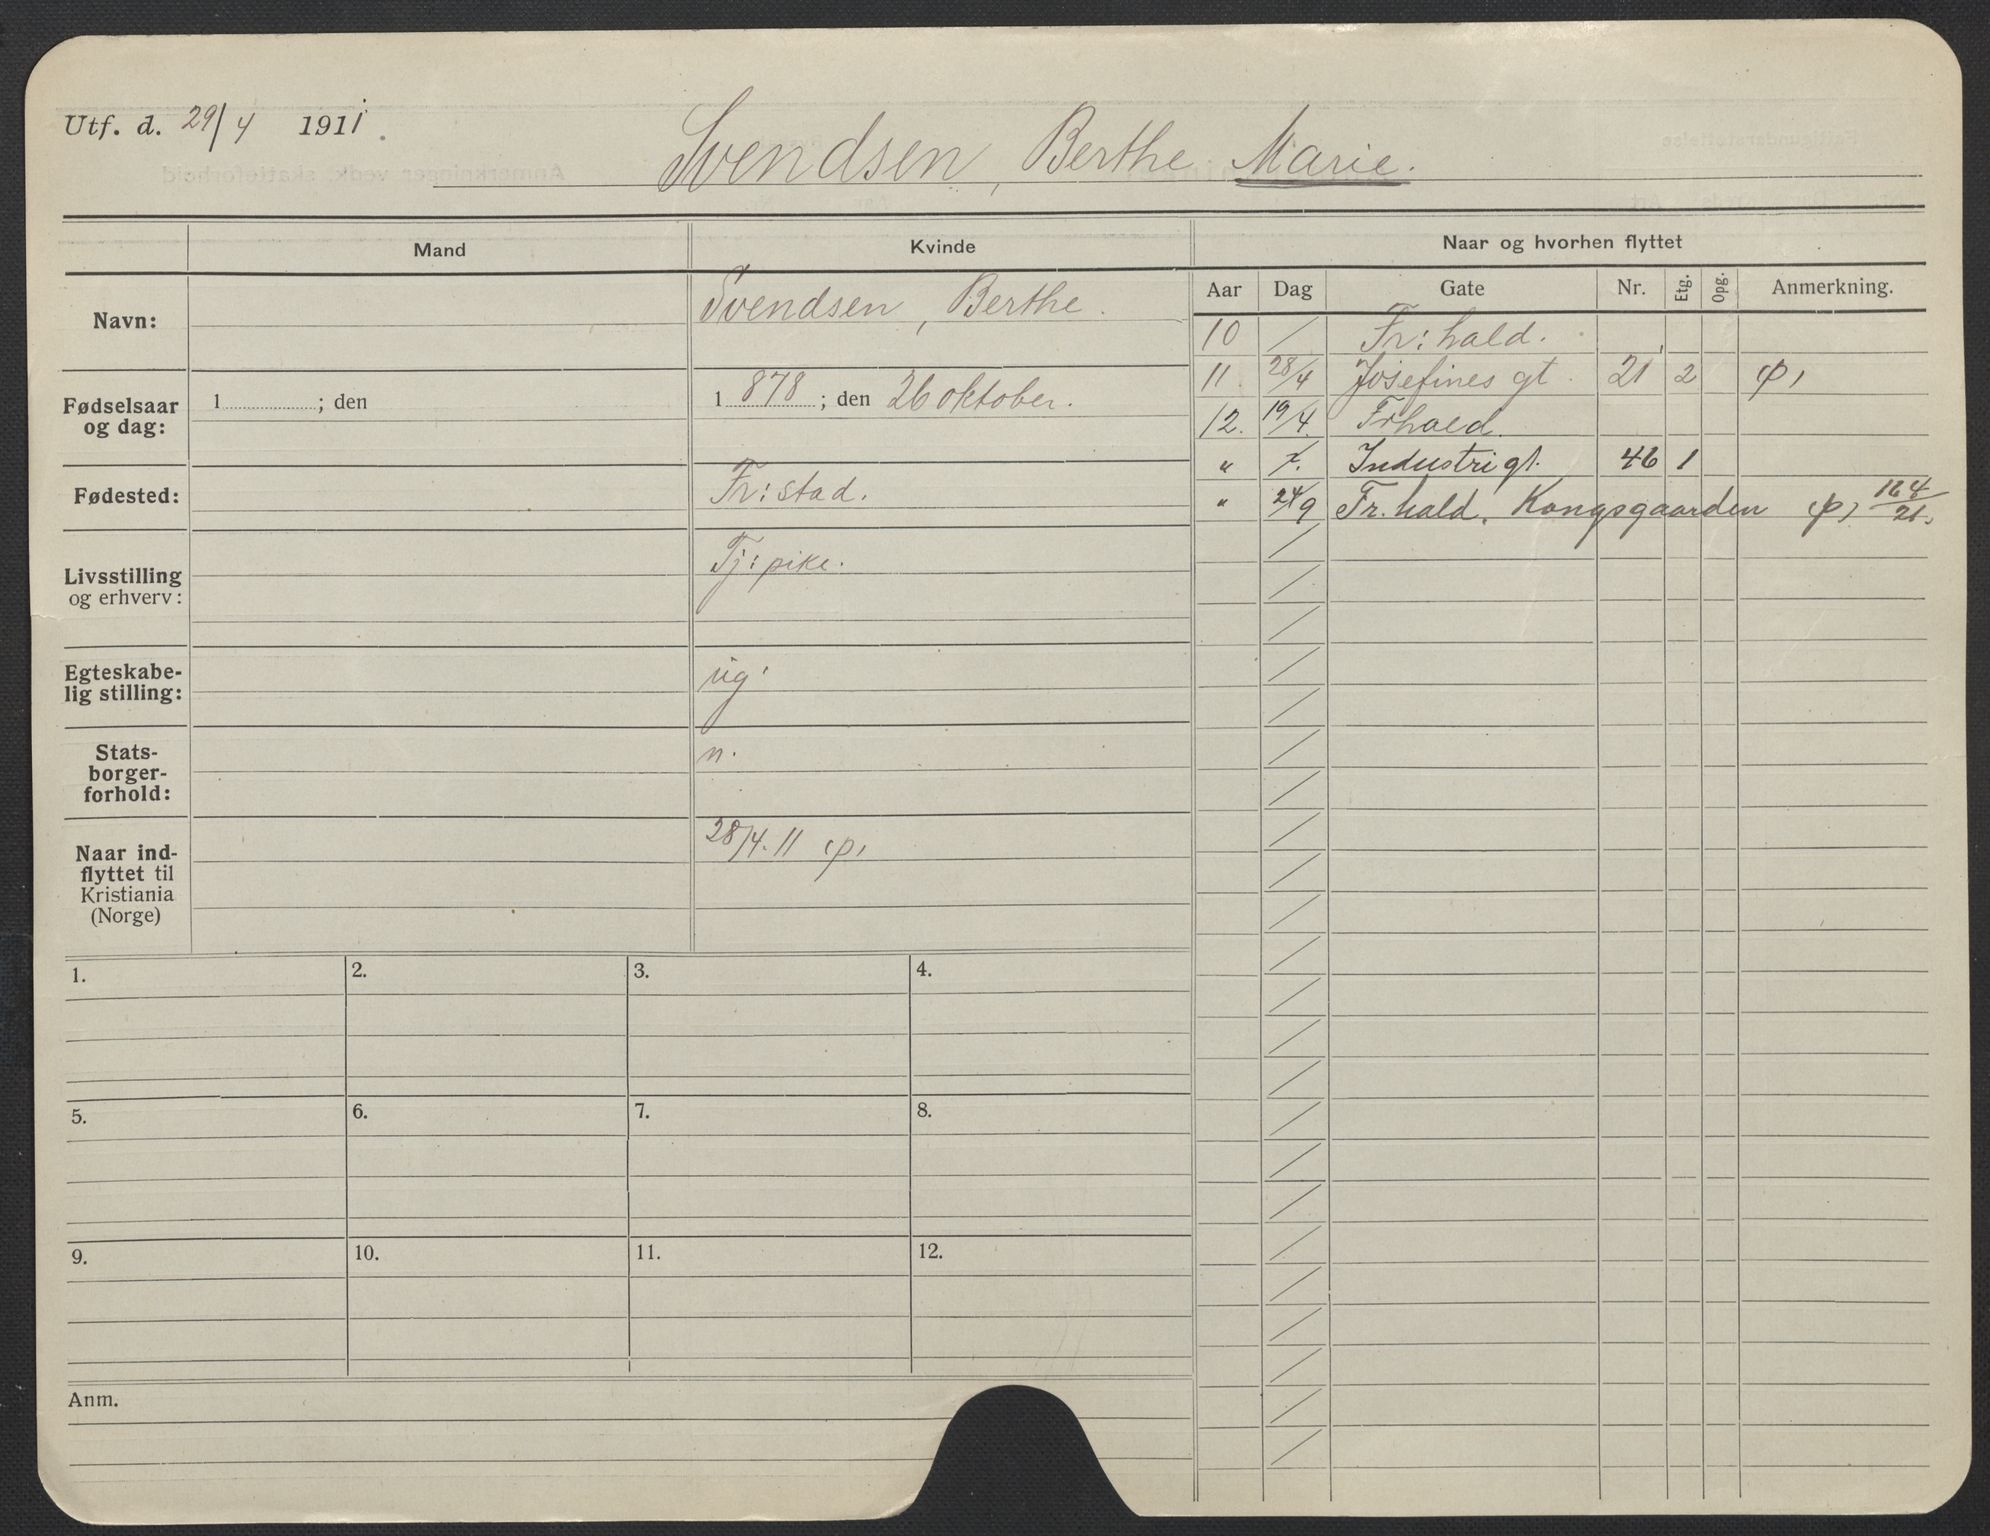 Utf. d. 29/4 1911.
Svendsen, Berthe Marie.
Mand
Kvinde
Naar og hvorhen flyttet
Aar Dag Gate Nr. Etg. Opg. Anmerkning.
Navn:
Svendsen, Berthe.
Fødselsaar
og dag:
1 ; den
1 878 ; den 26 oktober.
Fødested:
Fr: stad.
Livsstilling
og erhverv:
Tj: pike.
Egteskabe-
lig stilling:
ug.
Stats-
borger-
forhold:
n.
Naar ind-
flyttet til
Kristiania
(Norge)
28/4. 11 (p)
10 / Fr: hald.
11. 28/4 Josefines gt. 21 2 (p)
12. 19/4 Frhald.
" Industrigt. 46 1
" 24/9 Fr. hald. Kongsgaarden (p) 164/21.
1. 2. 3. 4.
5. 6. 7. 8.
9. 10. 11. 12.
Anm.